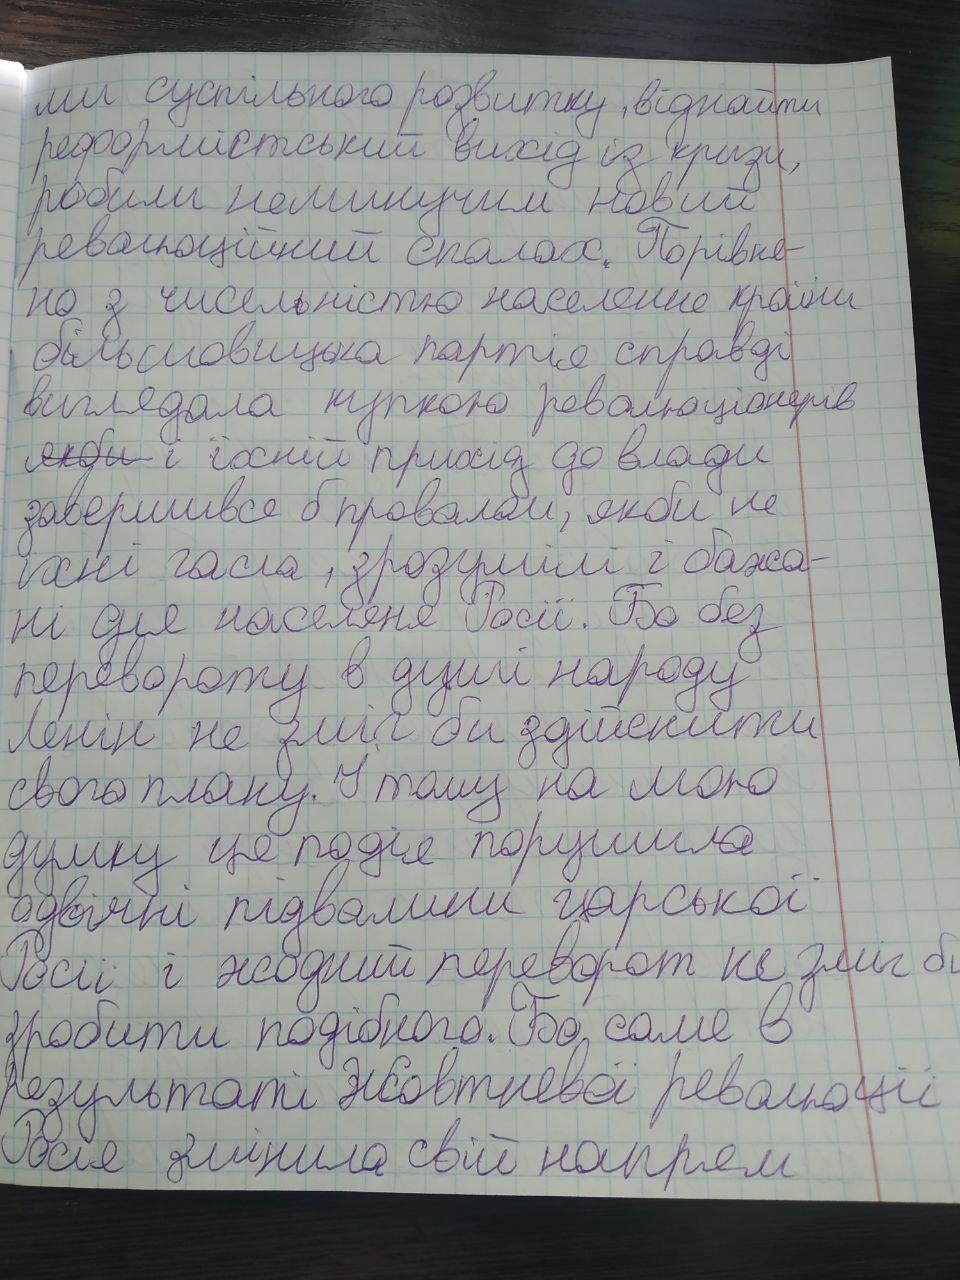 ми суспільного розвитку, віднайти
реформістський вихід із кризи,
робили неминучим новий
революційний спалах. Порівня-
но з чисельністю населення країни
більшовицька партія справді
виглядала купкою революціонерів
якби і їхній прихід до влади
завершився б провалом, якби не
їхні гасла, зрозумілі і бажа-
ні для населеня Росії. Бо без
перевороту в душі народу
Ленін не зміг би здійснити
свого плану. І тому на мою
думку це подія порушила
одвічні підвалини царської
Росії і жодний переворот не зміг би
зробити подібного. Бо саме в
результаті Жовтневої революції
Росія змінила свій напрям